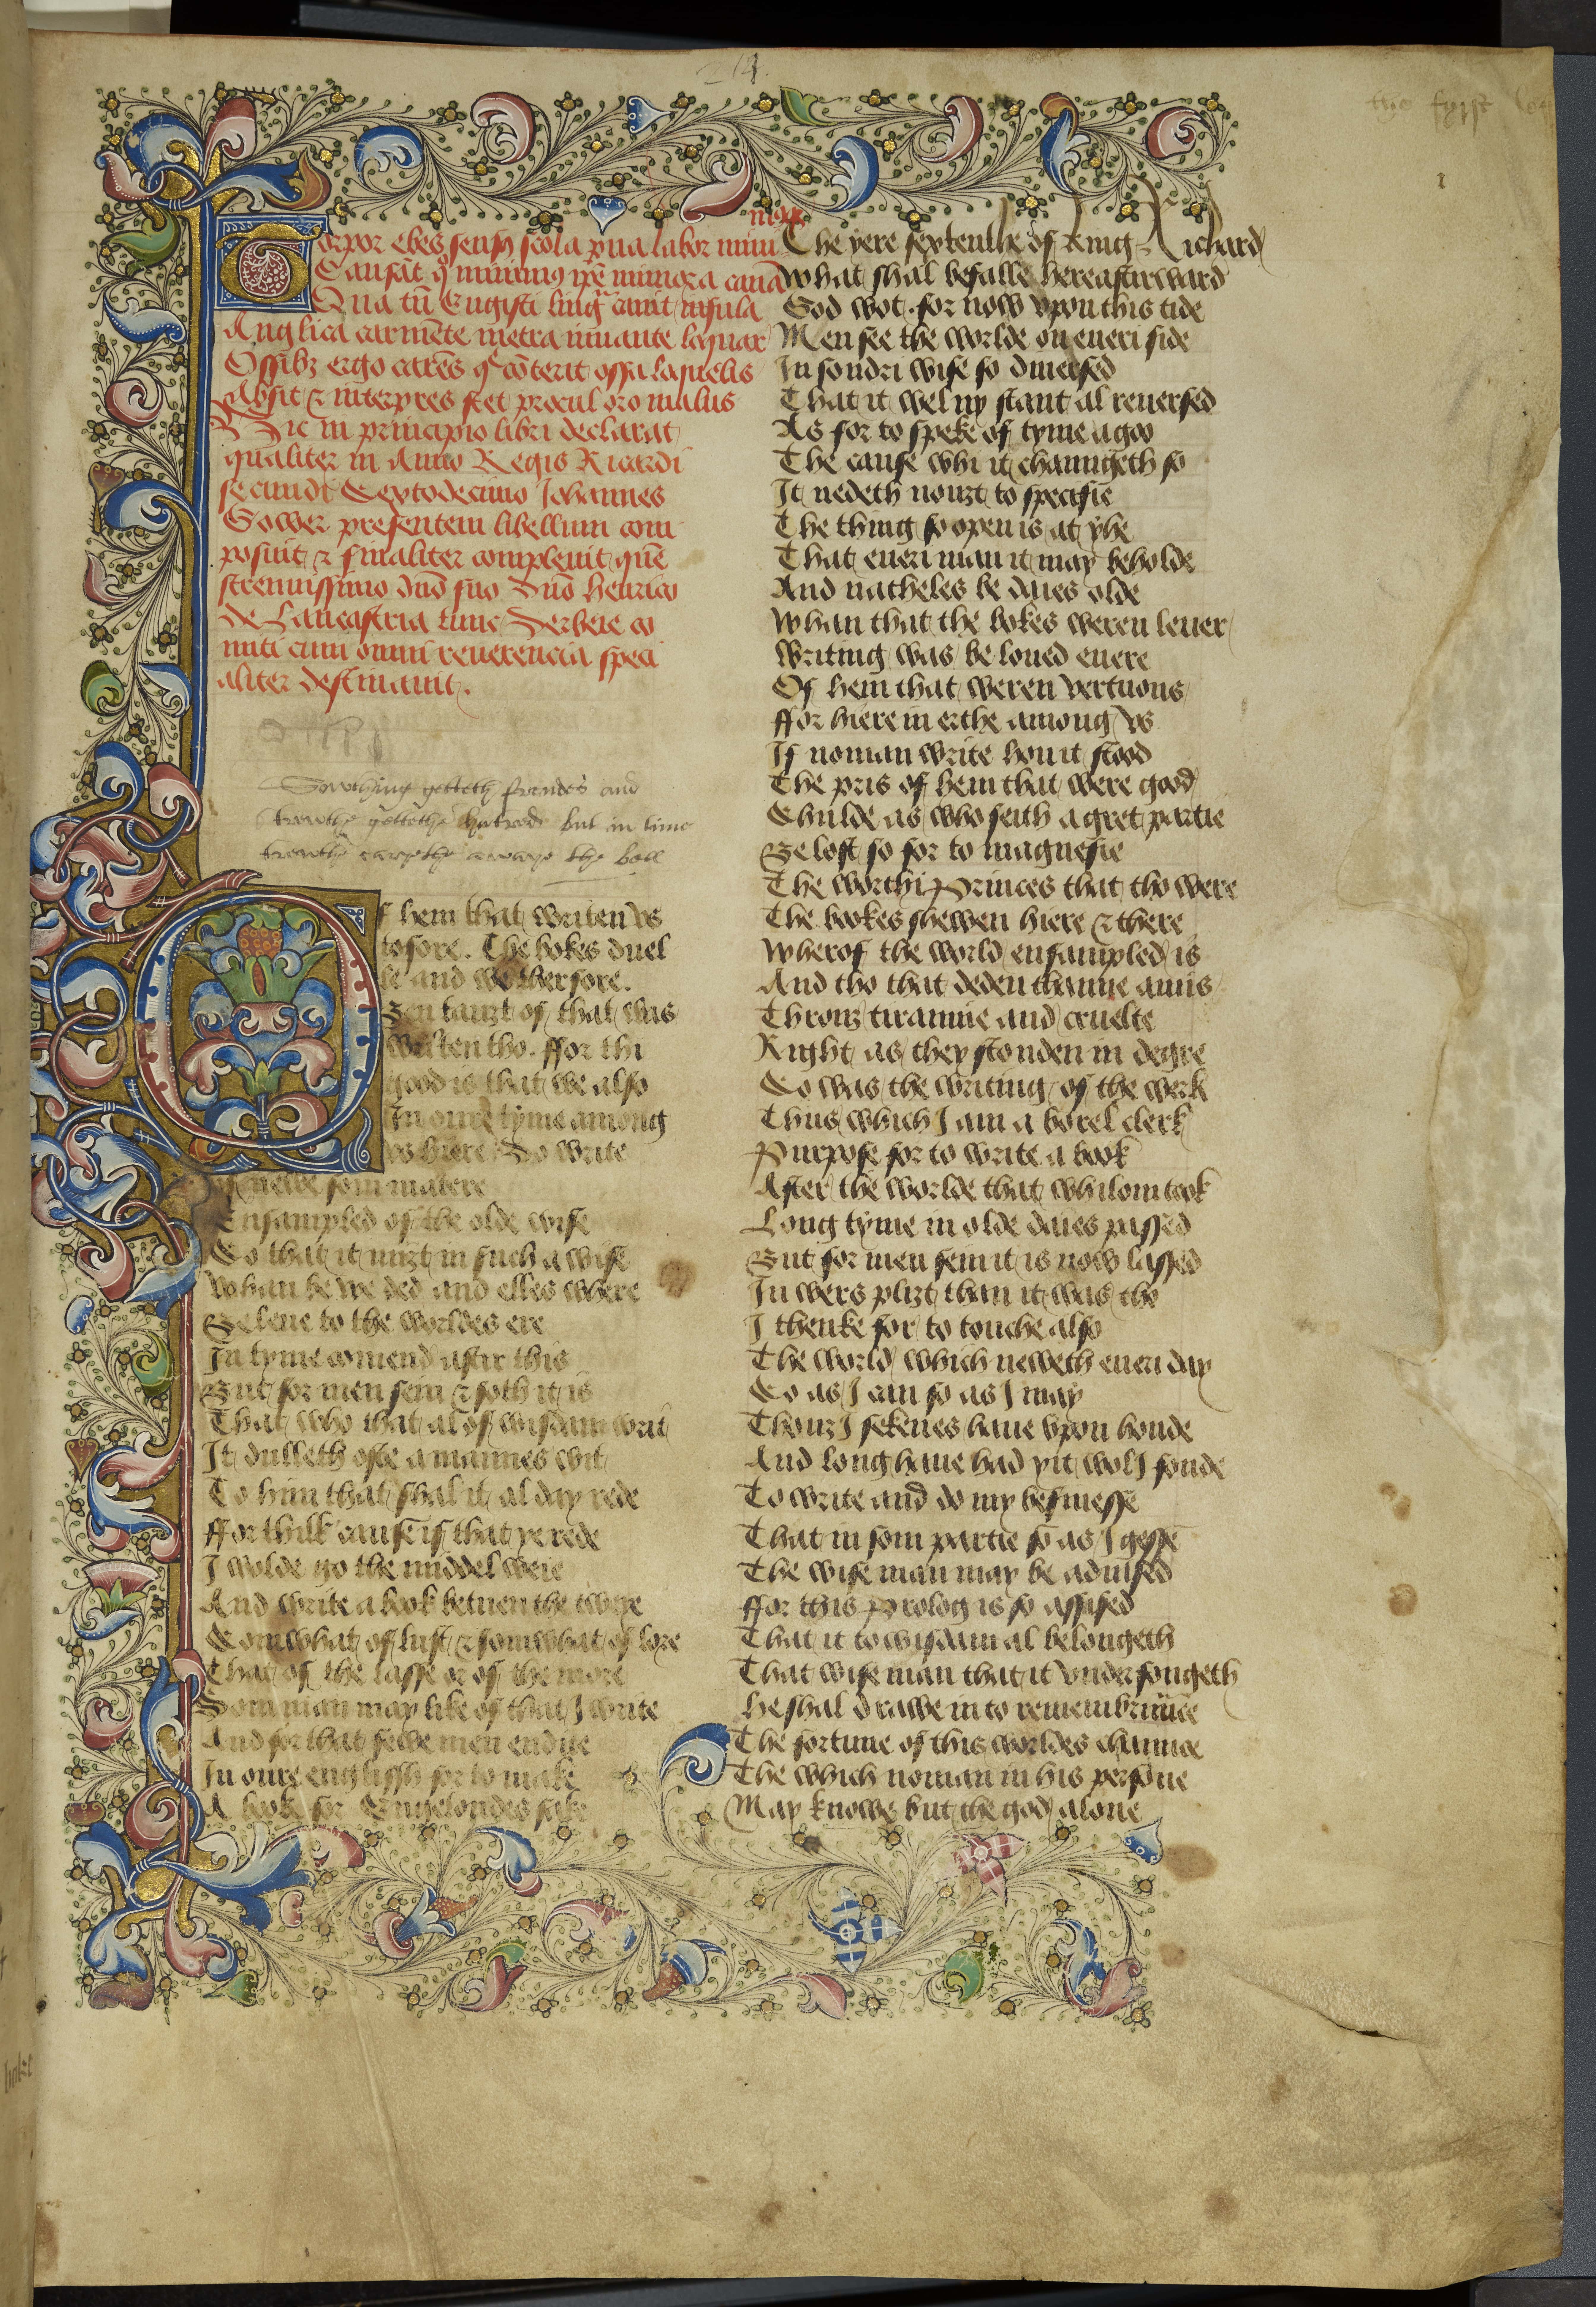 14
the fyrst
1
Torpor ebes sensꝰ scola pua labor mini
mꝰqꝫ
Causāt qͦ minimꝰ ipē minora canā
Qua tn̄ Engisti lingᵃ canit insula
Anglica carmēte metra iuuante loquar
Ossibꝫ ergo carēs qᵉ cōterit ossa loquelis
Absit ⁊ interpres stet procul oro malus
Hic in principio libri declarat
qualiter in Anno Regis Ricardi
secundi Sextodecimo Johannes
Gower presentem libellum com
posuit ⁊ finaliter compleuit quē
strenuissimo dn̄o suo dn̄o henrico
de Lancastria tunc Derbeie co
miti cum omni reuerencia speci
aliter destinauit.
Soothing getteth frendes and
trewthe gettethe hatrede but in time
trewthe caryethe awaye the bell
Of hem that writen vs
tofore. The bokes duel
le and we therfore.
Ben tauȝt of that was
writen tho. ffor thi
good is that we also
In oure tyme among
vs hiere Do write
of newe som matere
Ensampled of the olde wise
So that it miȝt in such a wise
Whan be we ded and elles where
Beleue to the worldes ere
In tyme comend aftir this
But for men sein ⁊ soth it is
That who that al of wisdam writ
It dulleth ofte a mannes wit
To him that shal it al day rede
ffor thilk cause if that ye rede
I wolde go the middel weie
And write a book betuen the tweye
Somwhat of lust ⁊ somwhat of lore
That of the lasse or of the more
Som man may like of that I write
And for that fewe men endite
In oure englissh for to make
A book for Engelondes sake
The yere sextenthe of King Richard
What shal befalle hereafterward
God wot. for now vpon this tide
Men see the worlde on eueri side
In sondri wise so diuersed
That it wel ny stant al reuersed
As for to speke of tyme agoo
The cause whi it chaungeth so
It nedeth nouȝt to specifie
The thing so open is at yhe
That eueri man it may beholde
And natheles be daies olde
Whan that the bokes weren leuer
Writing was be loued euere
Of hem that weren vertuous
ffor hiere in erthe among vs
If noman write hou it stood
The pris of hem that were good
Shulde as who seith a gret partie
Be lost so for to magnefie
The worthi Princes that tho were
The bookes shewen hiere ⁊ there
Wherof the world ensampled is
And tho that deden thanne amis
Throuȝ tirannie and cruelte
Right as they stonden in degre
So was the writing of the werk
Thus which I am a borel clerk
Purpose for to write a book
After the worlde that whilom took
Long tyme in olde daies passed
But for men sein it is now lassed
In wers pliȝt than it was tho
I thenke for to touche also
The world which neweth eueri day
So as I can so as I may
Thouȝ I sekenes haue vpon honde
And long haue had yit wol I fonde
To write and do my besinesse
That in som partie so as I gesse
The wise man may be aduised
ffor this Prolog is so assised
That it to wisdam al belongeth
That wise man that it vnderfongeth
he shal drawe in to remembrance
The fortune of this worldes chance
The which noman in his persone
May knowe but the god alone